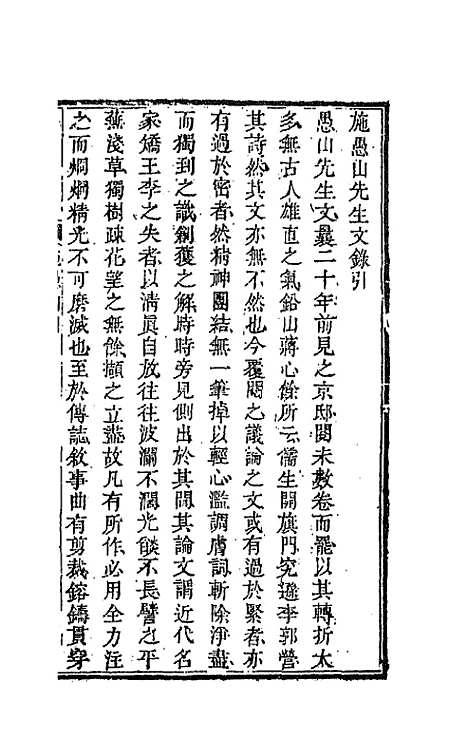 施愚山先生文錄引
愚山先生文曩二十年前見之京邸閱未數卷而罷以其轉折太
多無古人雄直之氣鉛山蔣心餘所云儒生開旗門究遜李郭營
其詩然其文亦無不然也今覆閱之議論之文或有過於緊者亦
有過於密者然精神團結無一筆掉以輕心濫調膚詞斬除淨盡
而獨到之識創獲之解時時旁見側出於其閒其論文謂近代名
家矯王李之失者以淸眞自放往往波瀾不濶光餤不長譬之平
蕪淺草獨樹疎花望之無餘擷之立盡故凡有所作必用全力注
之而炯炯精光不可磨滅也至於傳誌敘事曲有剪裁鎔鑄貫穿